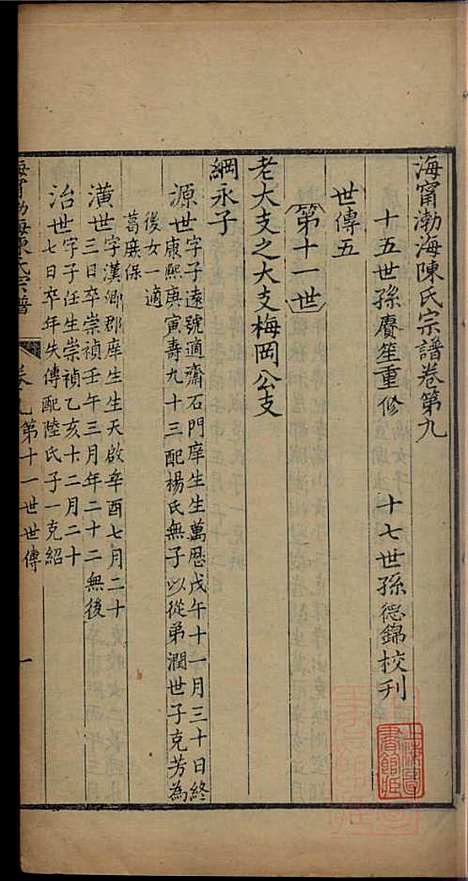 海甯渤海陳氏宗譜卷第九
十五世孫賡笙重修　十七世孫德錦校刊
世傳五
第十一世
老大支之大支梅岡公支
綱永子
源世字子遠號適齋石門庠生生萬厯戊午十一月三十日終
康熙庚寅壽九十三配楊氏無子以從弟潤世子克芳為
後女一適
葛㢘保
潢世字漢卿郡庠生生天啟辛酉七月二十
三日卒崇禎壬午三月年二十二無後
治世字子任生崇禎乙亥十二月二十
七日卒年失傳配陸氏子一克紹
海甯渤海陳氏宗譜　卷九第十一世世傳　一
上海圖書館藏